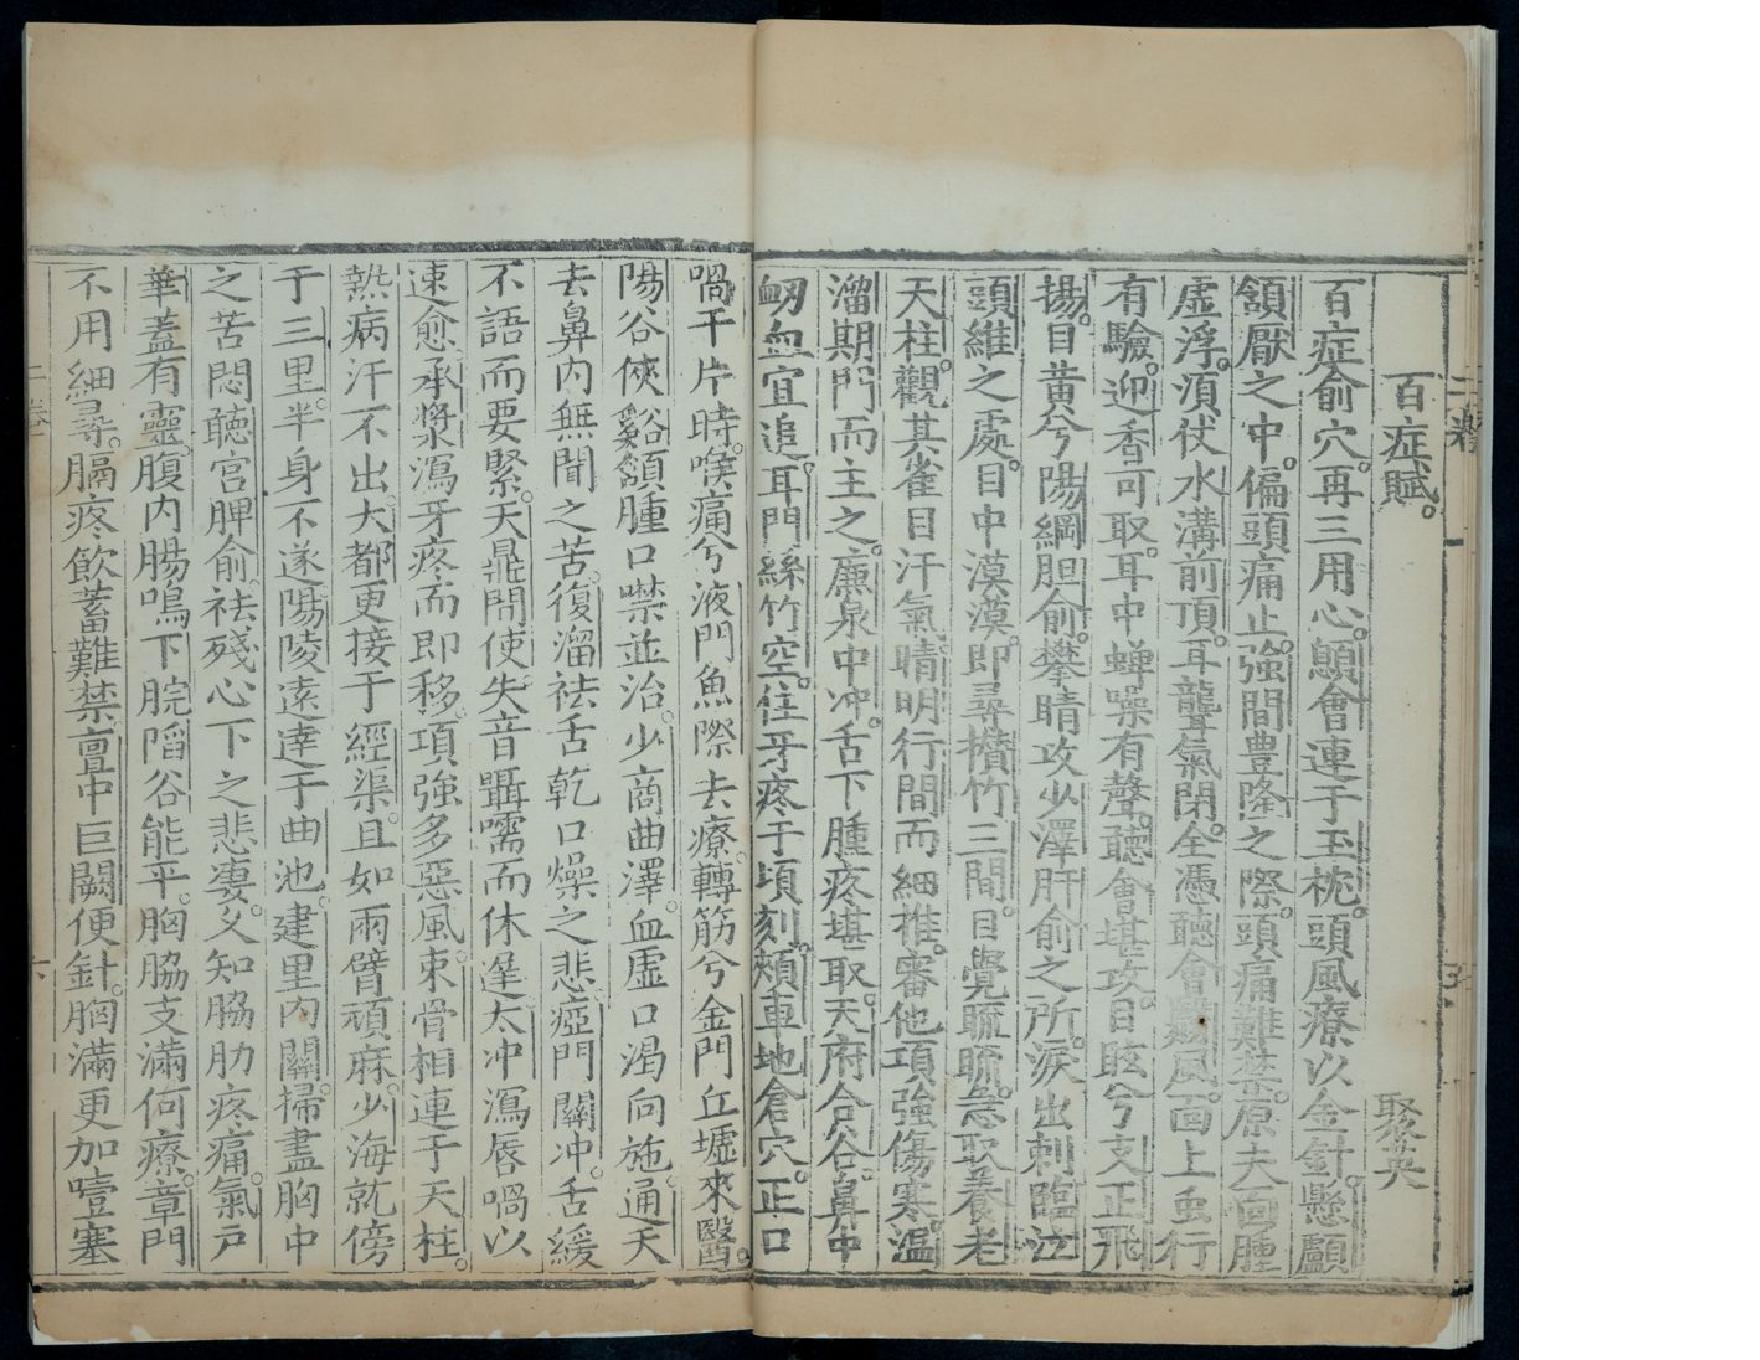 百症賦。聚英
百症俞穴。再三用心。顖會連于玉枕。頭風療以金針。懸顱
頷厭之中。偏頭痛止。強間豊隆之際。頭痛難禁。原夫面腫
虛浮。須伏水溝前頂。耳聾氣閉。全憑聽會翳風。面上虫行
有驗。迎香可取。耳中蝉噪有聲。聽會堪攻。目眩兮支正飛
揚。目黃兮陽綱胆俞。攀睛攻少澤肝俞之所。淚出刺臨泣
頭維之處。目中漠漠。即尋攅竹三間。目覺䀮䀮。急取養老
天柱。觀其雀目汗氣。睛明行間而細推。審他項強傷寒。溫
溜期門而主之。廉泉中冲。舌下腫疼堪取。天府合谷。鼻中
衂血宜追。耳門絲竹空。住牙疼于頃刻。頰車地倉穴。正口
喎于片時。喉痛兮液門魚際去療。轉筋兮金門丘墟來醫。
陽谷俠谿。頷腫口噤並治。少商曲澤。血虛口渴同施。通天
去鼻内無聞之苦。復溜祛舌乾口燥之悲。瘂門關冲。舌緩
不語而要緊。天鼎間使。失音囁嚅而休遲。太冲瀉唇喎以
速愈。承漿瀉牙疼而即移。項強多惡風。束骨相連于天柱。
熱病汗不出。大都更接于經渠。且如兩臂頑麻。少海就傍
于三里。半身不遂。陽陵遠達于曲池。建里内關。掃盡胸中
之苦悶。聽宮脾俞。祛殘心下之悲凄。乂知脇肋疼痛。氣戶
華蓋有靈。腹内腸鳴。下脘陷谷能平。胸脇支滿何療。章門
不用細尋。膈疼飲蓄難禁。亶中巨闕便針。胸滿更加噎塞
二卷
六